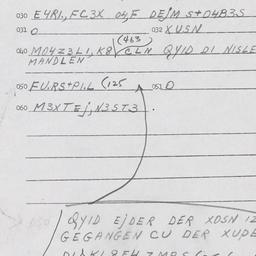 030 E4R1., FC3X 04,F DEJM St04B3.S
031 O 032 XUSN
(463)
040 M04Z3L1, K8 CLN QYID DI NISLE
MANDLEN
050 FU.RStP1.L (125 051 O
060 M3XTEj, N3ST3.
QYID EJDER DER XDSN 12
GEGANGEN CU DER XUPE